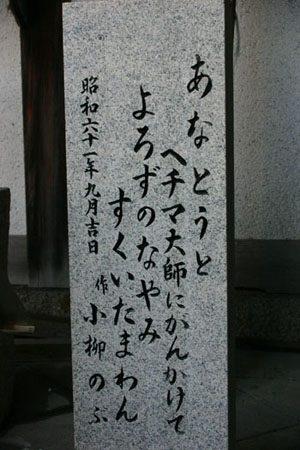 あなとうと
ヘチマ大師にがんかけて
よろずのなやみ
すくいたまわん
作 小柳のぶ
昭和六十一年九月吉日